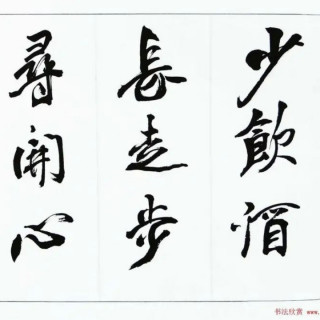 少飲酒
長走步
尋開心
书法欣赏 www.